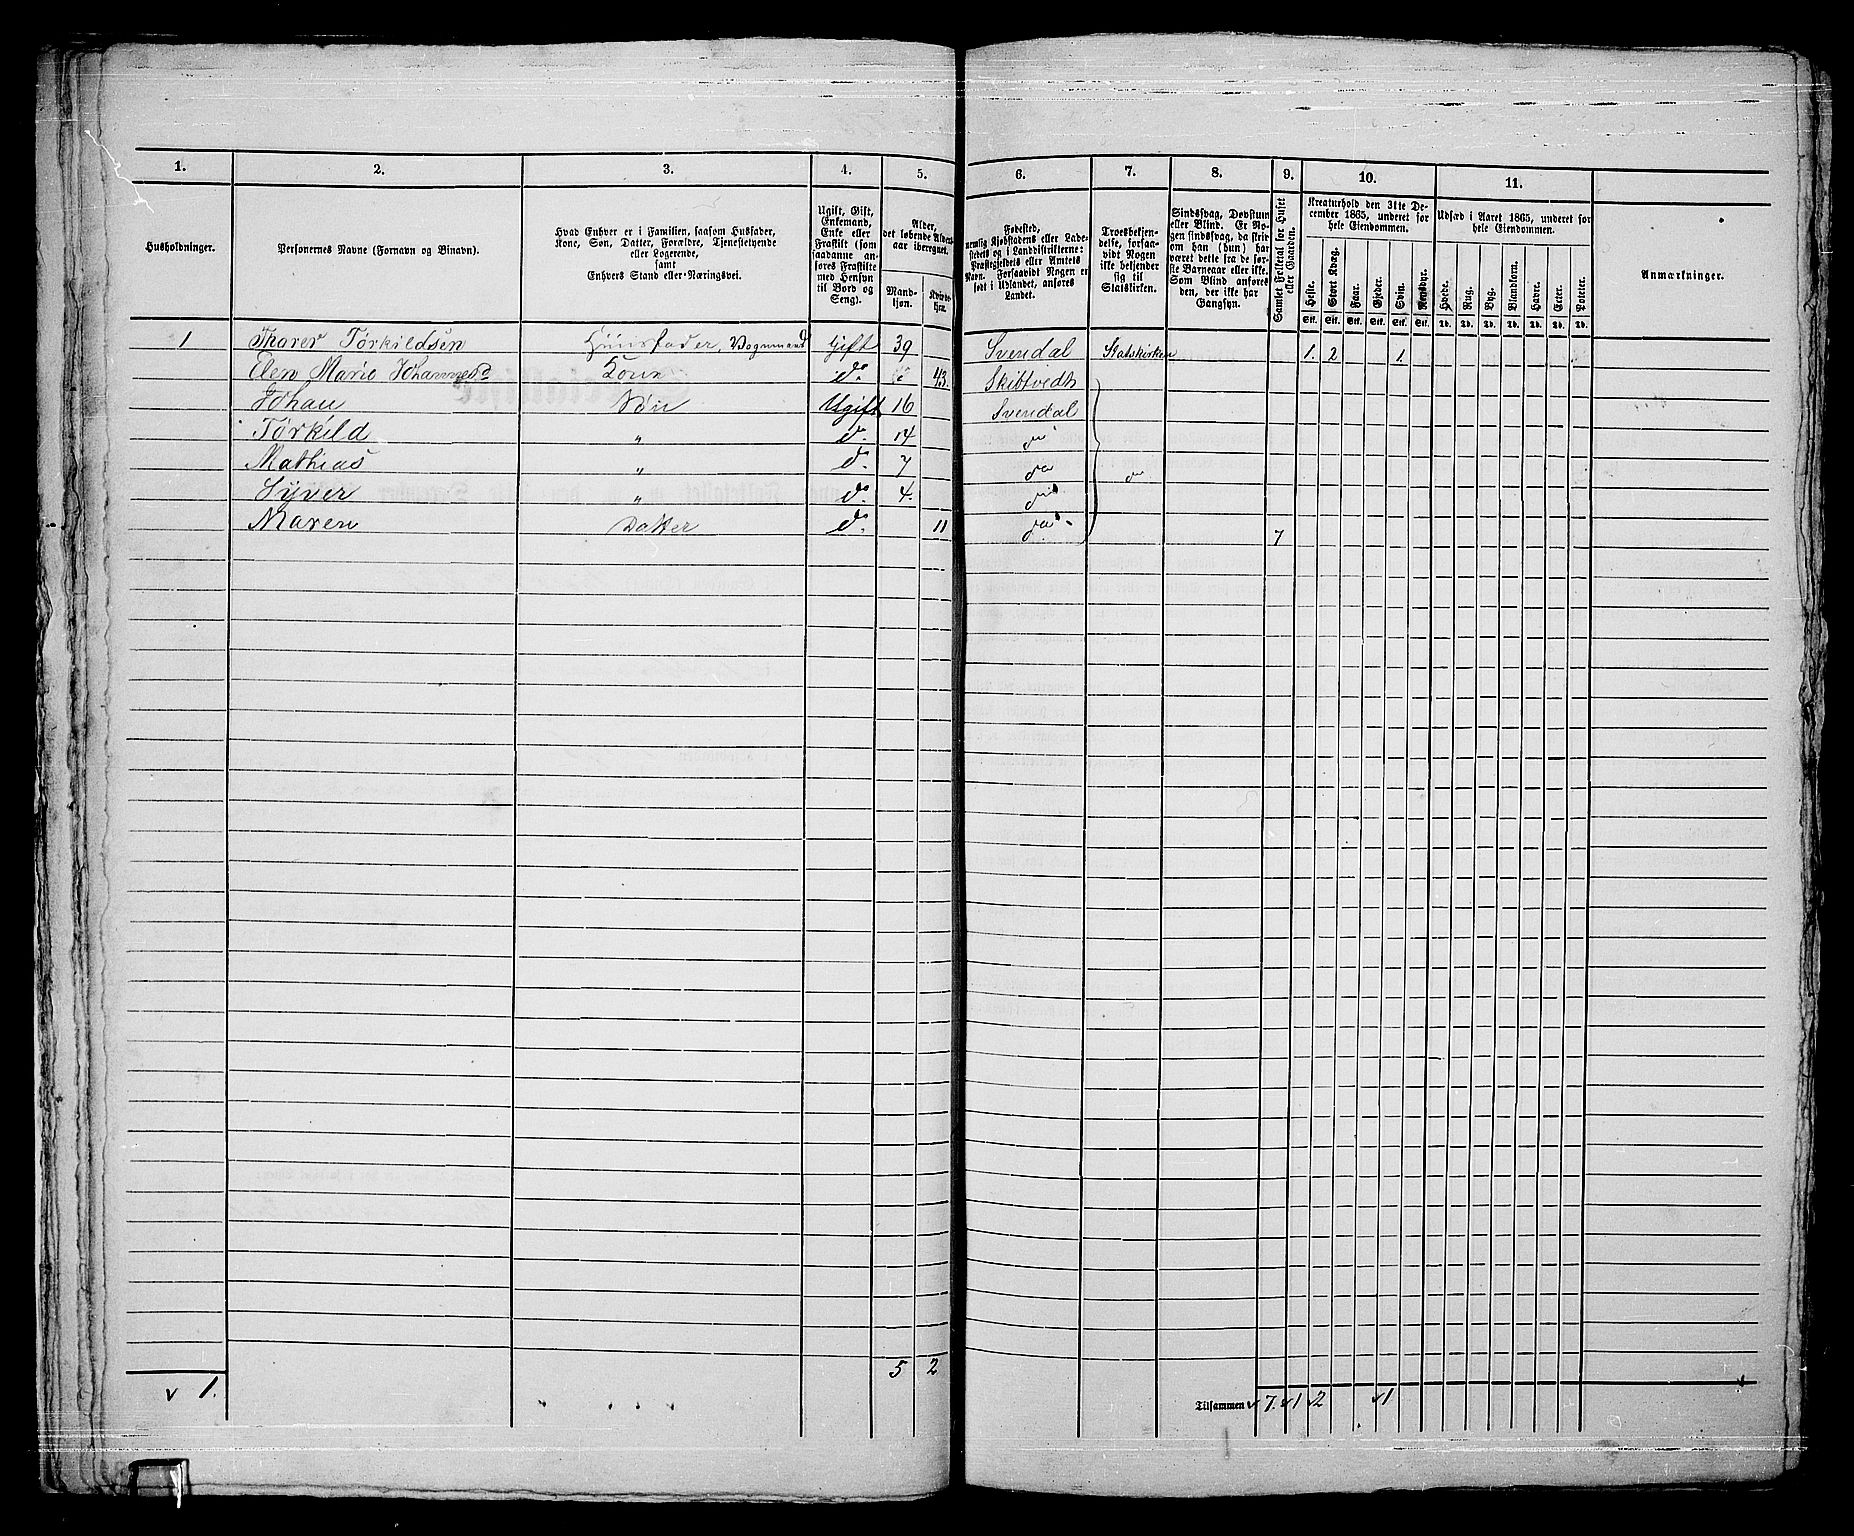 1. 2. 3. 4. 5. 6. 7. 8. 9. 10. 11.
Husholdninger.
Personernes Navne (Fornavn og Binavn).
Hvad Enhver er i Familien, saasom Husfader,
Kone, Søn, Datter, Forældre, Tjenestetyende
eller Logerende,
samt
Enhvers Stand eller Næringsvei.
Ugift, Gift,
Enkemand,
Enke eller
Fraskilt (som
saadanne an-
føres Fraskilte
med Hensyn
til Bord og
Seng).
Alder,
det løbende Alders-
aar iberegnet.
Mand-
kjøn.
Kvinde-
kjøn.
Fødested,
nemlig Kjøbstadens eller Lade-
stedets og i Landdistrikterne:
Præstegjeldets eller Amtets
Navn. Forsaavidt Nogen er
født i Udlandet, anføres
Landet.
Troesbekjen-
delse, forsaa-
vidt Nogen
ikke bekjender
sig til
Statskirken.
Sindssvag, Døvstum
eller Blind. Er No-
gen sindssvag, da skriv
om han (hun) har
været dette fra de før-
ste Barneaar eller ikke.
Som Blind anføres
den, der ikke har
Gangsyn.
Samlet Folketal for Huset
eller Gaarden.
Kreaturhold den 31te De-
cember 1865, underet for
hele Eiendommen.
Heste. Stort Kvæg. Faar. Gjeder. Svin. Rensdyr.
Stk. Stk. Stk. Stk. Stk. Stk.
Udsæd i Aaret 1865, underet for
hele Eiendommen.
Hvede. Rug. Byg. Blandkorn. Havre. Erter. Poteter.
Td. Td. Td. Td. Td. Td. Td.
Anmærkninger.
1 Thorer Torkildsen Huusfader, Vognmand Gift 39 Svendal Statskirken 1. 2 1.
Elen Marie Johannesd Kone do. 43. Skibtvedt
Johan Søn Ugift 16 Svendal
Torkild " do. 14 do
Mathias " do. 7 do do
Syver " do. 4. do
Maren Datter do. 11 do. 7
5 2
v 1.
Tilsammen v 7. v 1 v 2 v 1